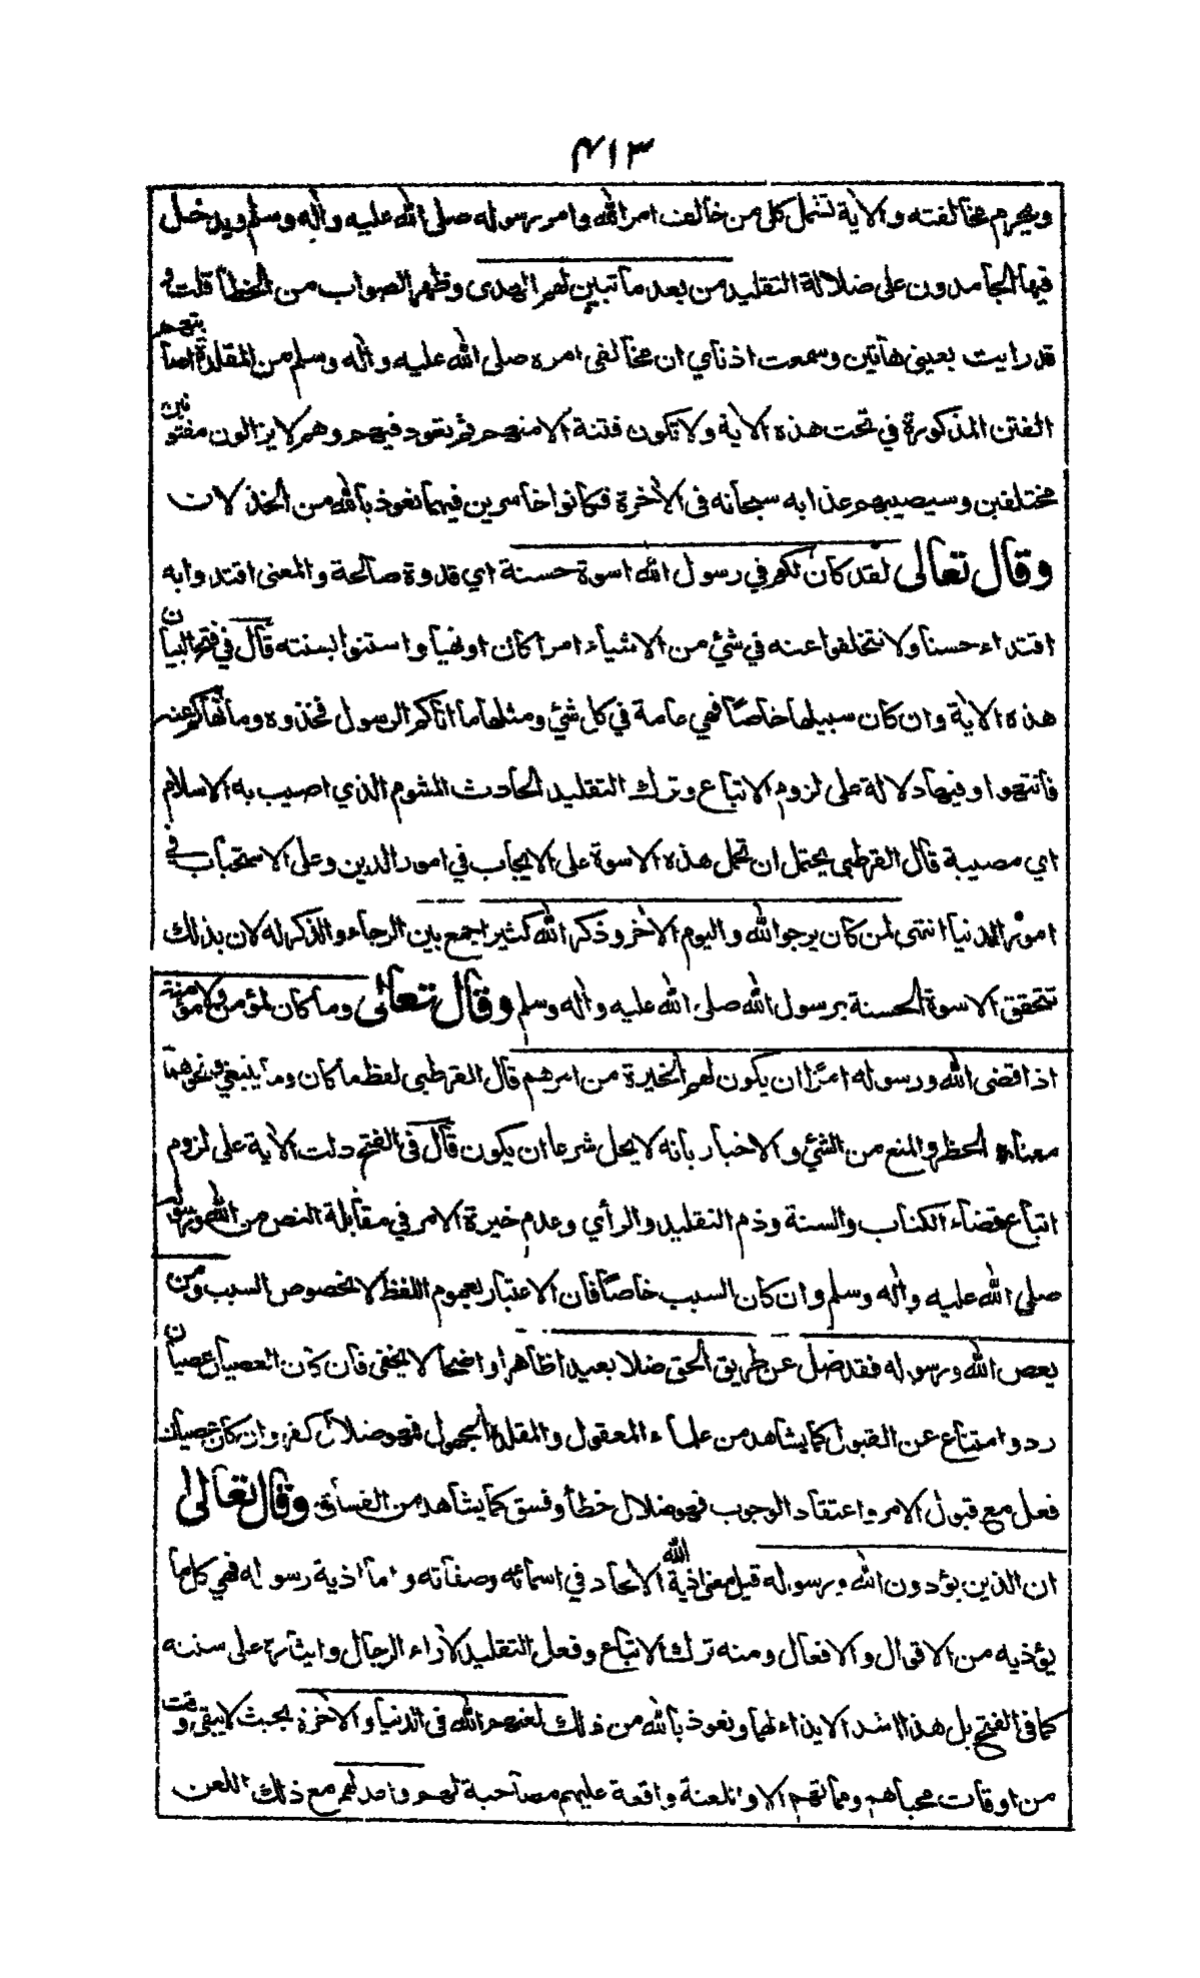 ٤١٣
ويحرم مخالفته والاية تشمل كل من خالف امر الله وامر رسوله صلى الله عليه واله وسلم ويدخل
فيها الجامدون على ضلالة التقليد من بعد ما تبين لهم الهدى وظهر الصواب من الخطأ قلت و
قد رايت بعيني هاتين وسمعت اذناي ان مخالفى امره صلى الله عليه واله وسلم من المقلدة اصابتهم
الفتن المذكورة في تحت هذه الاية ولا تكون فتنة الا منهم ثم تعود فيهم وهم لا يزالون مفتونين
مختلفين وسيصيبهم عذابه سبحانه فى الاخرة فكانوا خاسرين فيهما نعوذ بالله من الخذلان
وقال تعالى لقد كان لكم في رسول الله اسوة حسنة اي قدوة صالحة والمعنى اقتدوا به
اقتداء حسنا ولا تتخلفوا عنه في شئ من الاشياء امرا كان او نهيا واستنوا بسنته قال في فتح البيان
هذه الاية وان كان سبيلها خاصا فهي عامة في كل شئ ومثلها ما اتاكم الرسول فخذوه وما نهاكم عنه
فانتهوا وفيها دلالة على لزوم الاتباع وترك التقليد الحادث المشوم الذي اصيب به الاسلام
اي مصيبة قال القرطبي يحتمل ان تحمل هذه الاسوة على الايجاب في امور الدين وعلى الاستحباب في
امور الدنيا انتهى لمن كان يرجو الله واليوم الاخر وذكر الله كثيرا جمع بين الرجاء والذكر له لان بذلك
تتحقق الاسوة الحسنة برسول الله صلى الله عليه واله وسلم وقال تعالى وما كان لمؤمن ولا مؤمنة
اذا قضى الله ورسوله امرا ان يكون لهم الخيرة من امرهم قال القرطبي لفظ ما كان وما ينبغي ونحوهما
معناه الحظر والمنع من الشئ والاخبار بانه لا يحل شرعا ان يكون قال فى الفتح دلت الاية على لزوم
اتباع قضاء الكتاب والسنة وذم التقليد والرأي وعدم خيرة الامر في مقابلة النص من الله ورسوله
صلى الله عليه واله وسلم وان كان السبب خاصا فان الاعتبار بعموم اللفظ لا بخصوص السبب ومن
يعص الله ورسوله فقد ضل عن طريق الحق ضلالا بعيدا ظاهرا واضحا لا يخفى فان كان العصيان عصيان
رد وامتناع عن القبول كما يشاهد من علماء المعقول والمقلد الجهول فهو ضلال كفر وان كان عصيان
فعل مع قبول الامر واعتقاد الوجوب فهو ضلال خطأ وفسق كما يشاهد من الفساق وقال تعالى
ان الذين يؤذون الله ورسوله قيل معنى اذية الله الالحاد في اسمائه وصفاته واما اذية رسوله فهي كل ما
يؤذيه من الاقوال والافعال ومنه ترك الاتباع وفعل التقليد لاراء الرجال وايثاره على سننه
كما فى الفتح بل هذا اشد الايذاء لهما ونعوذ بالله من ذلك لعنهم الله فى الدنيا والاخرة بحيث لا يبقى وقت
من اوقات محياهم ومماتهم الا واللعنة واقعة عليهم مصاحبة لهم واعد لهم مع ذلك اللعن